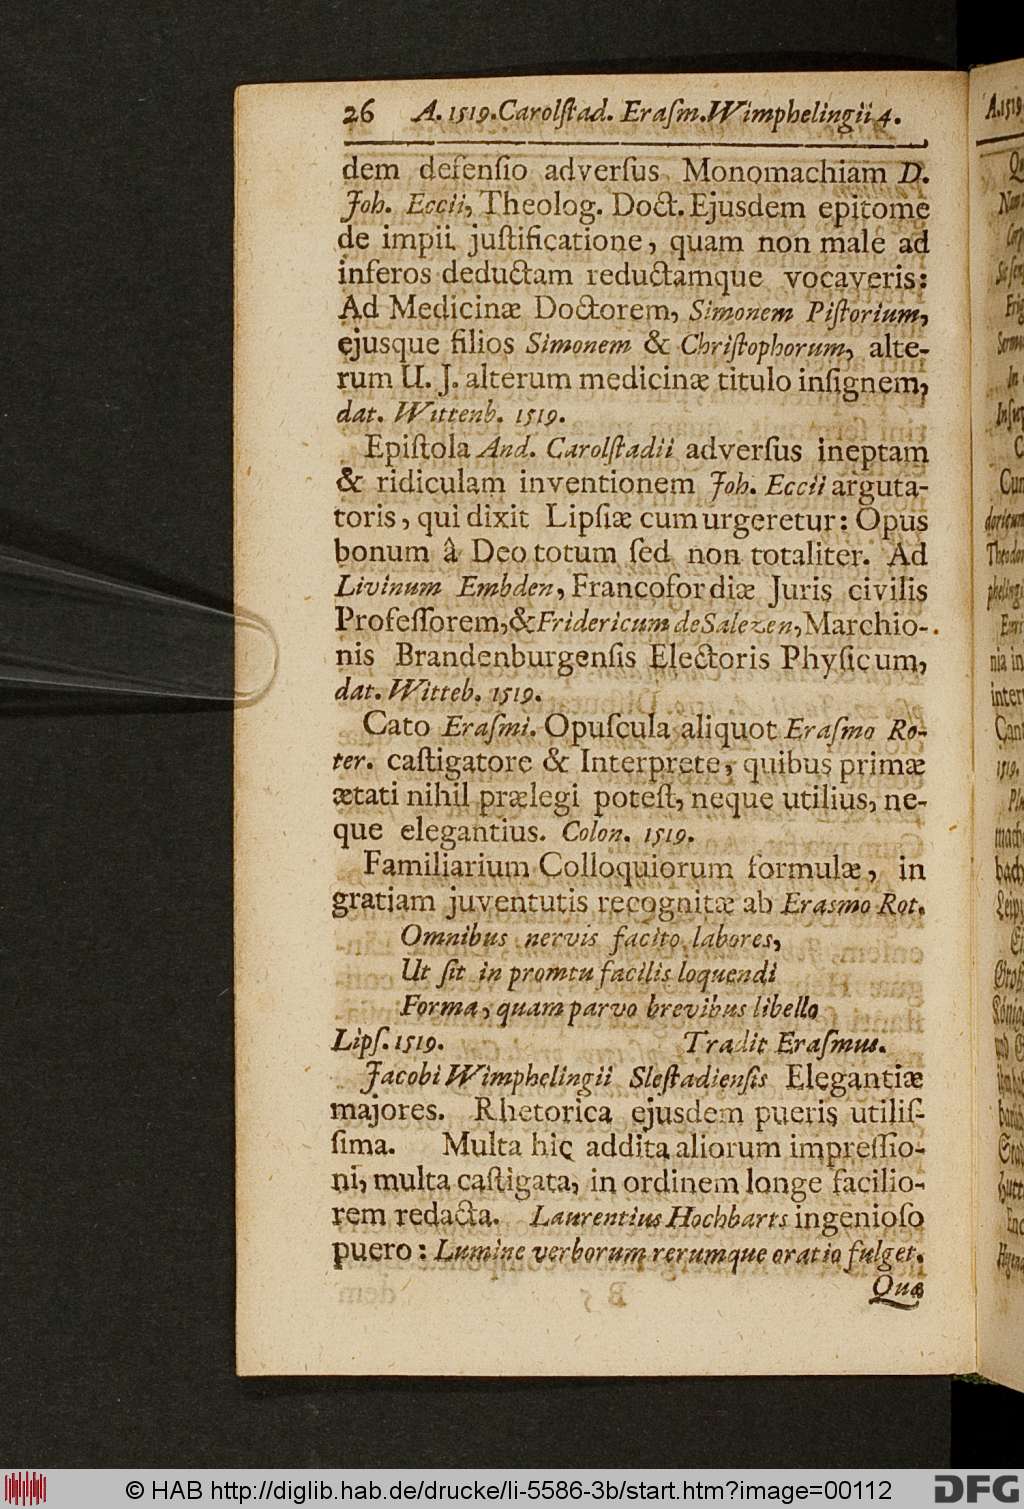 26 A. 1519. Carolſtad. Eraſm. Wimphelingii 4.
dem defenſio adverſus Monomachiam D.
Joh. Eccii, Theolog. Doct. Ejusdem epitome
de impii juſtificatione, quam non male ad
inferos deductam reductamque vocaveris:
Ad Medicinæ Doctorem, Simonem Piſtorium,
ejusque filios Simonem & Chriſtophorum, alte-
rum U. J. alterum medicinæ titulo inſignem,
dat. Wittenb. 1519.
Epiſtola And. Carolſtadii adverſus ineptam
& ridiculam inventionem Joh. Eccii arguta-
toris, qui dixit Lipſiæ cum urgeretur: Opus
bonum â Deo totum ſed non totaliter. Ad
Livinum Embden, Francofordiæ Juris civilis
Profeſſorem, & Fridericum de Salezen, Marchio-
nis Brandenburgenſis Electoris Phyſicum,
dat. Witteb. 1519.
Cato Eraſmi. Opuſcula aliquot Eraſmo Ro-
ter. caſtigatore & Interprete, quibus primæ
ætati nihil prælegi poteſt, neque utilius, ne-
que elegantius. Colon. 1519.
Familiarium Colloquiorum formulæ, in
gratiam juventutis recognitæ ab Erasmo Rot.
Omnibus nervis facito labores,
Ut ſit in promtu facilis loquendi
Forma, quam parvo brevibus libello
Lipſ. 1519. Tradit Eraſmus.
Jacobi Wimphelingii Sleſtadienſis Elegantiæ
majores. Rhetorica ejusdem pueris utiliſ-
ſima. Multa hic addita aliorum impreſſio-
ni, multa caſtigata, in ordinem longe facilio-
rem redacta. Laurentius Hochbarts ingenioſo
puero: Lumine verborum rerumque oratio fulget.
Quæ
© HAB http://diglib.hab.de/drucke/li-5586-3b/start.htm?image=00112
DFG